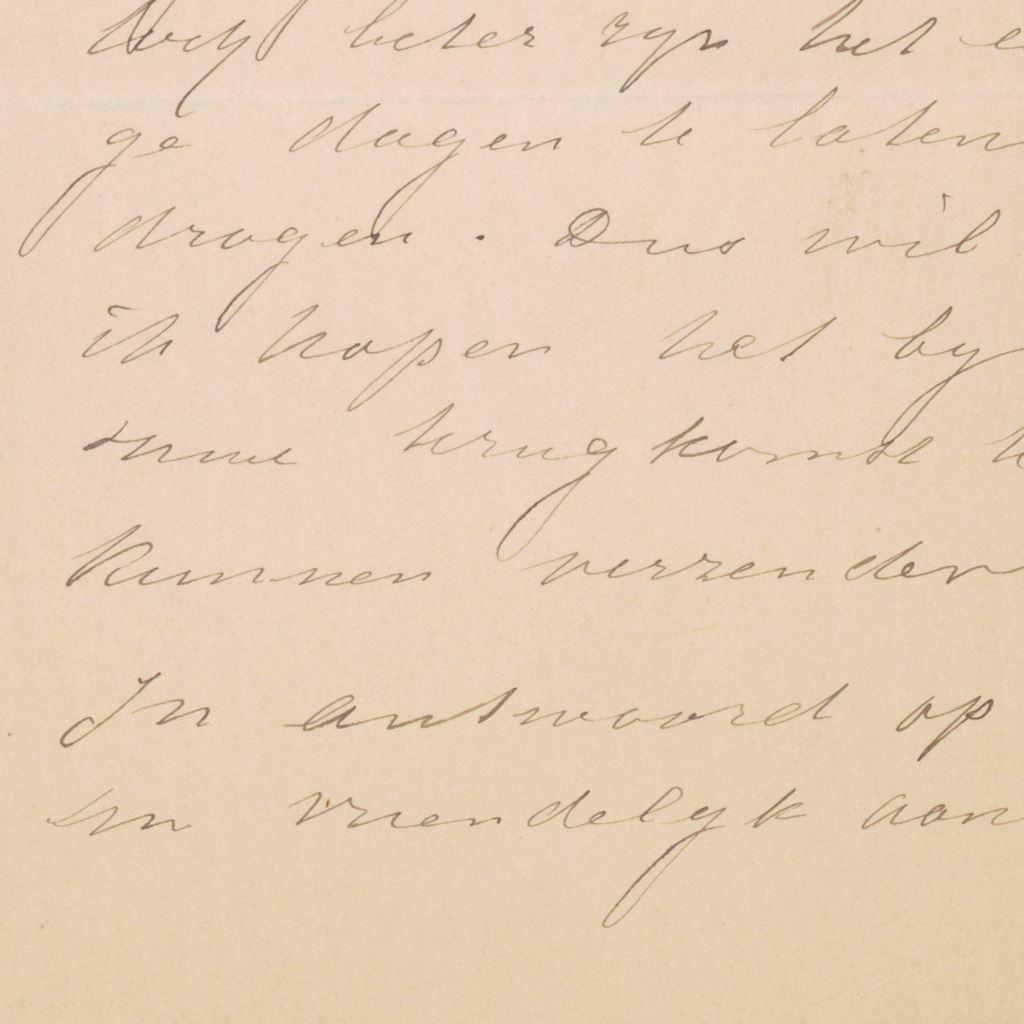 toch beter zyn het e
ge dagen te laten
drogen. Dus wil
ik hopen het by
terugkomst te
kunnen verzenden
In antwoord op
vriendelyk aan